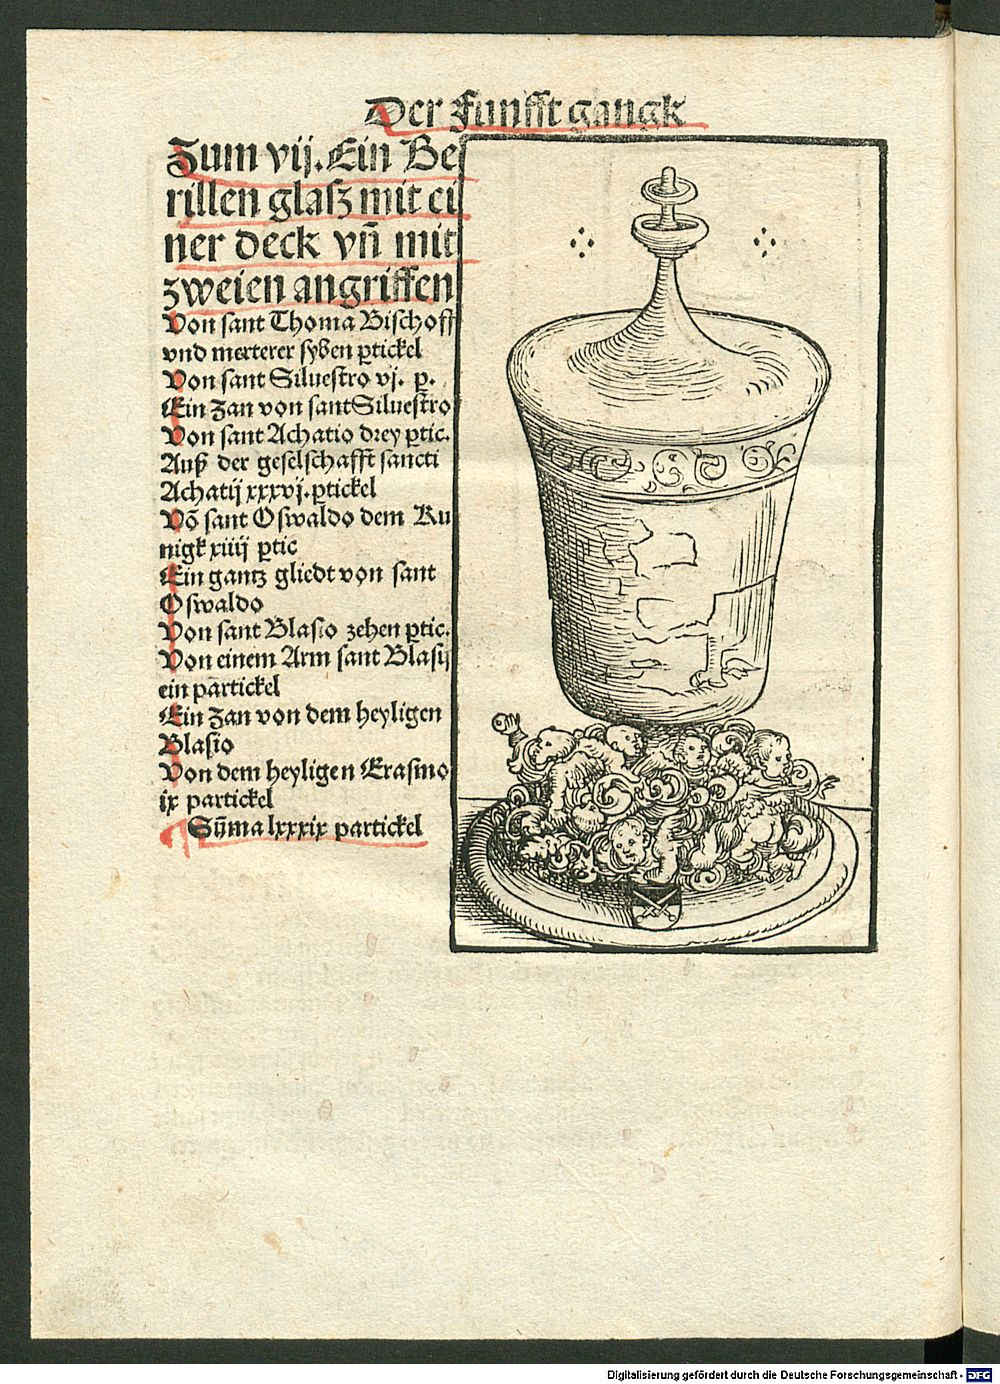 Der Funfft gangk
Zum vij. Ein Be
rillen glaſz mit ei
ner deck vn̄ mit
zweien angriffen
Von ſant Thoma Biſchoff
vnd merterer ſyben ꝑtickel
Von ſant Silueſtro vj. ꝑ.
Ein Zan von ſant Silueſtro
Von ſant Achatio drey ꝑtic.
Auß der geſelſchafft ſancti
Achatij xxxvj. ꝑtickel
Vō ſant Oſwaldo dem Ku
nigk xiiij ꝑtic
Ein gantz gliedt von ſant
Oſwaldo
Von ſant Blaſio zehen ꝑtic.
Von einem Arm ſant Blaſij
ein partickel
Ein Zan von dem heyligen
Blaſio
Von dem heyligen Eraſmo
ix partickel
Sūma lxxxix partickel
Digitalisierung gefördert durch die Deutsche Forschungsgemeinschaft - DFG